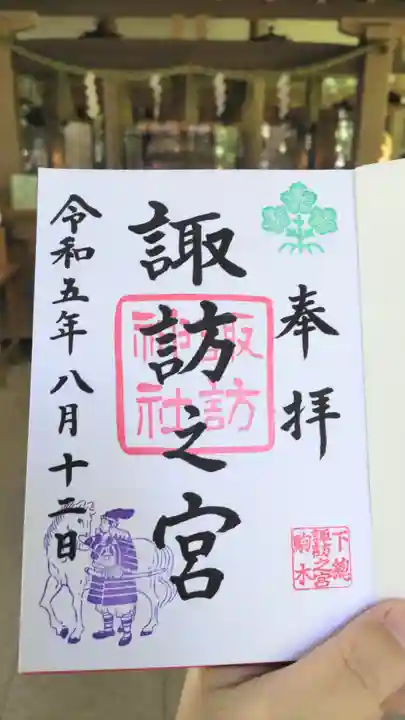 奉拝
下総
諏訪之宮
駒木
諏訪之宮
諏訪
神社
令和五年八月十二日